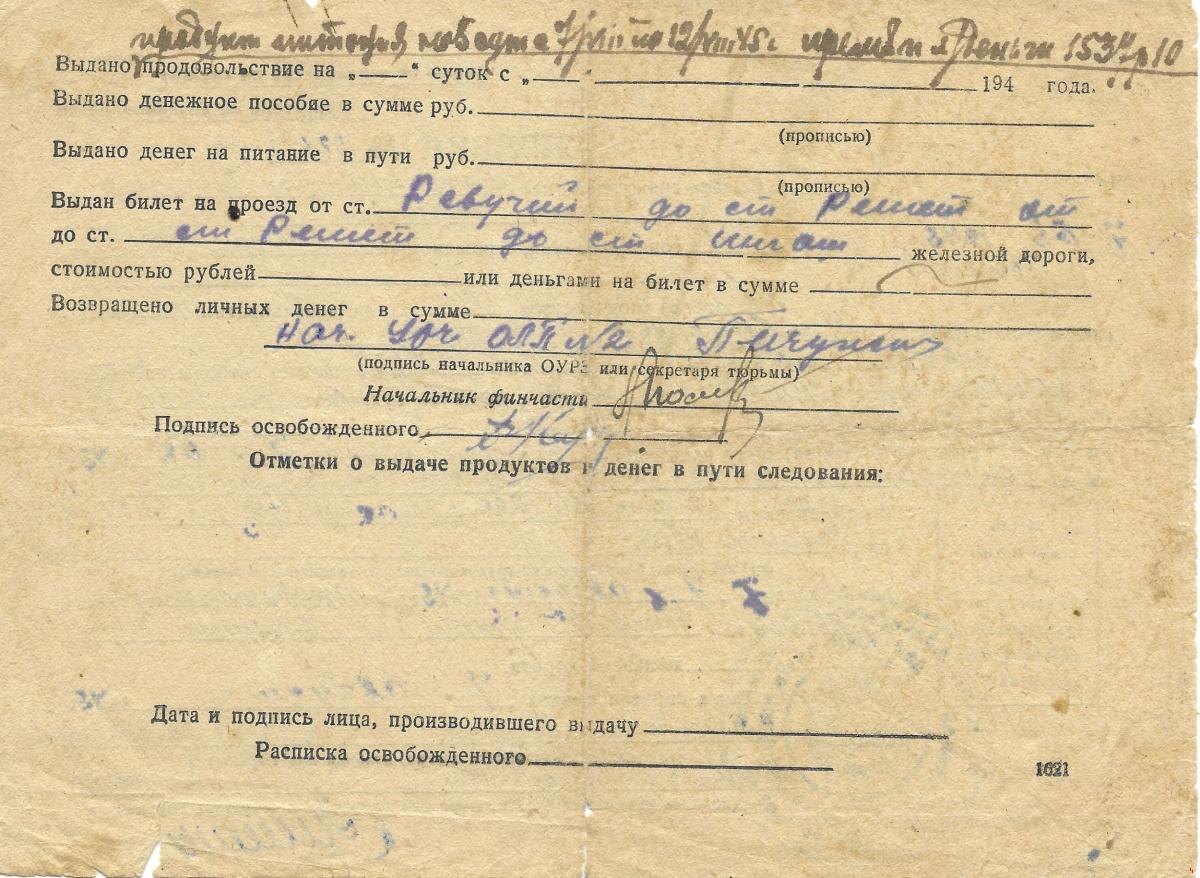 продукт питания по 12/VIII 45 г деньги 153
Выдано продовольствие на „ “ суток с „ 194 года.
Выдано денежное пособие в сумме руб.
(прописью)
Выдано денег на питание в пути руб.
(прописью)
Выдан билет на проезд от ст. Ревучий до ст Решет от
до ст. ст Решет до ст Ингаш железной дороги,
стоимостью рублей или деньгами на билет в сумме
Возвращено личных денег в сумме
Нач. ОЛП №2
(подпись начальника ОУРЗ или секретаря тюрьмы)
Начальник финчасти
Подпись освобожденного
Отметки о выдаче продуктов и денег в пути следования:
Дата и подпись лица, производившего выдачу
Расписка освобожденного
1621